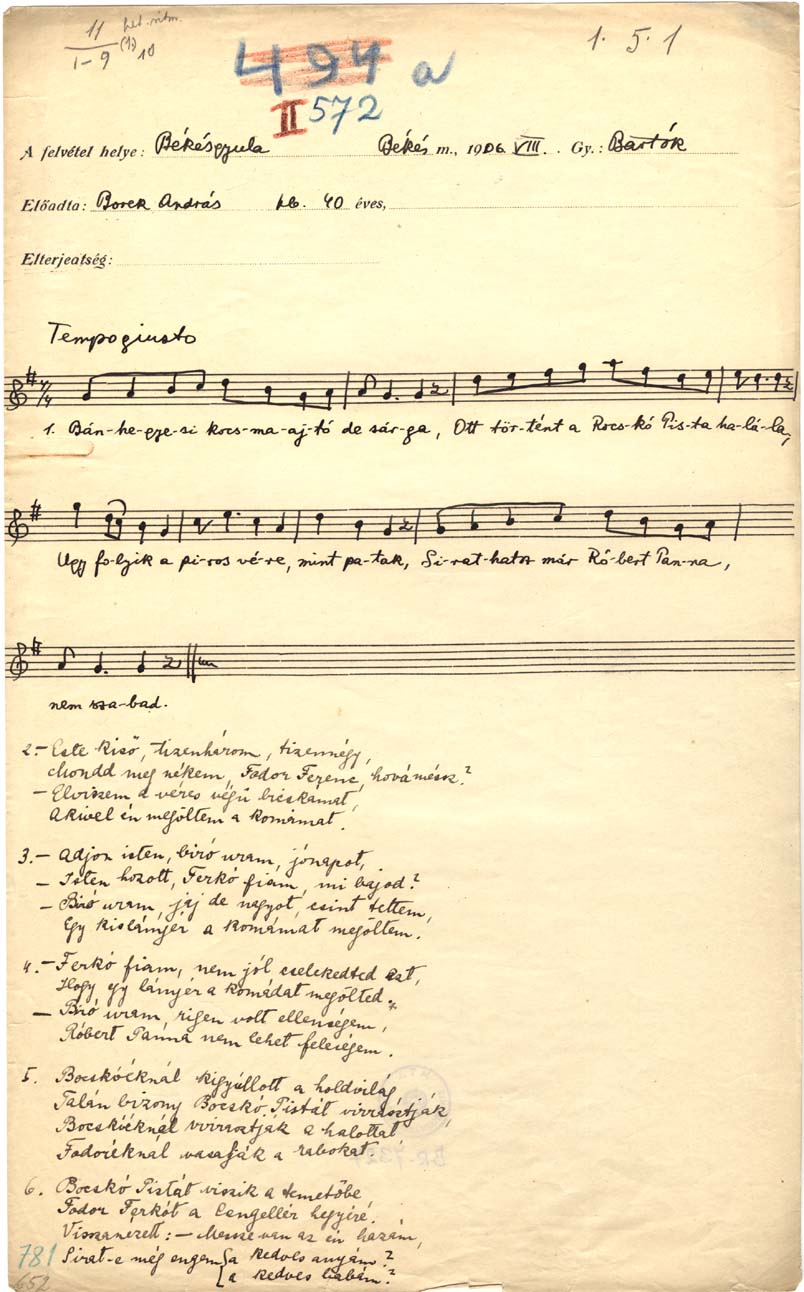 11 het. ritm.
1-9 (1) 10
494 a
1. 5. 1
II 572
A felvétel helye: Békésgyula Békés m., 1906 VIII. Gy.: Bartók
Előadta: Borek András kb. 40 éves,
Elterjeatség:
Tempo giusto
7/4
1. Bán-he-gye-si kocs-ma-aj-tó de sár-ga, Ott tör-tént a Rocs-kó Pis-ta ha-lá-la,
Ugy fo-lyik a pi-ros vé-re, mint pa-tak, Si-rat-hatod már Ró-bert Pan-na,
nem sza-bad.
2. – Este késő, tizenhárom, tizennégy,
Mondd meg nékem, Fodor Ferenc, hová mész?
– Elviszem a véres végű bicskámat,
Akivel én megöltem a komámat.
3. – Adjon isten, biró uram, jónapot,
– Isten hozott, Ferkó fiam, mi bajod?
– Biró uram, jaj de nagyot, csint tettem,
Egy kislányér a komámat megöltem.
4. – Ferkó fiam, nem jól cselekedted ezt,
Hogy egy lányér a komádat megölted.
– Biró uram, rigen volt ellenségem,
Róbert Panna nem lehet feleségem.
5. Bocskóéknál kigyúllott a holdvilág
Talán bizony Bocskó Pistát virrasztják,
Bocskóéknál virrasztják a halottat,
Fodoréknál vasalják a rabokat.
6. Bocskó Pistát viszik a temetőbe,
Fodor Ferkót a Lengellér hegyire.
Visszanézett: – Messze van az én hazám,
Sirat-e még engem { a kedves anyám?
a kedves babám?
781
652